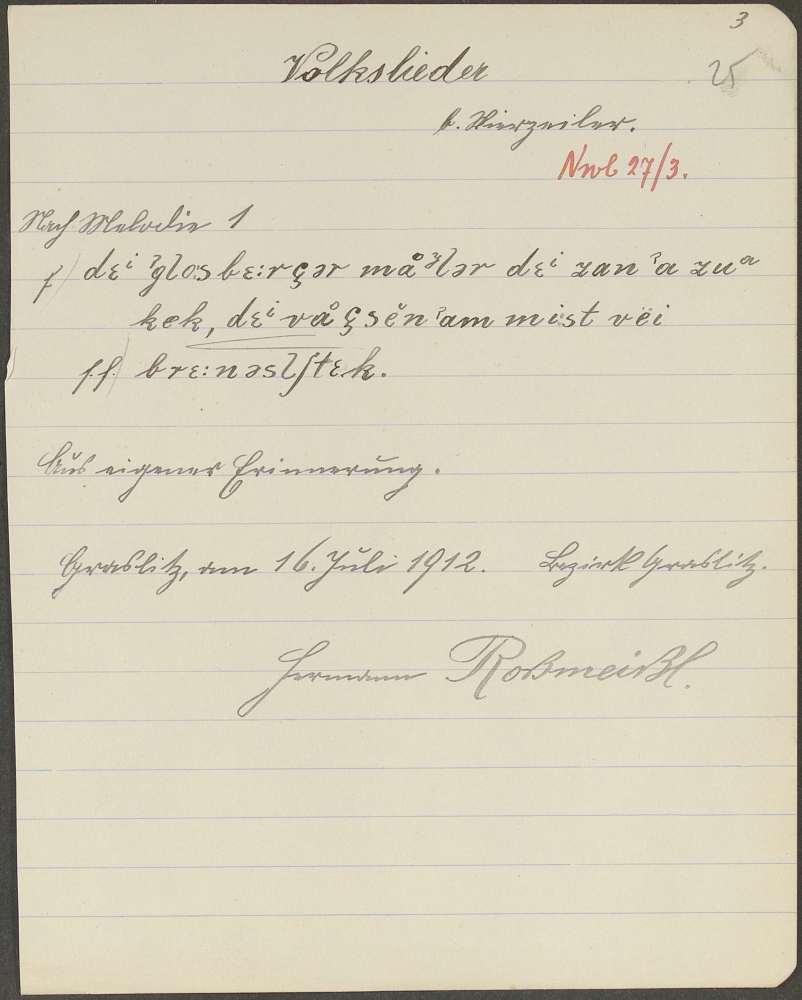 3
Volkslieder
25
b. Vierzeiler.
Nwb 27/3.
Nach Melodie 1
f) dɛⁱ ˀglos bɛ:rçər må ˀlər dɛⁱ zan ˀa zuᵃ
kek, dɛⁱ våçsĕn ˀam mist vëi
ff) brɛ:nəslʃtɛk.
Aus eigener Erinnerung.
Graslitz, am 16. Juli 1912. Bezirk Graslitz.
Hermann Roßmeißl.